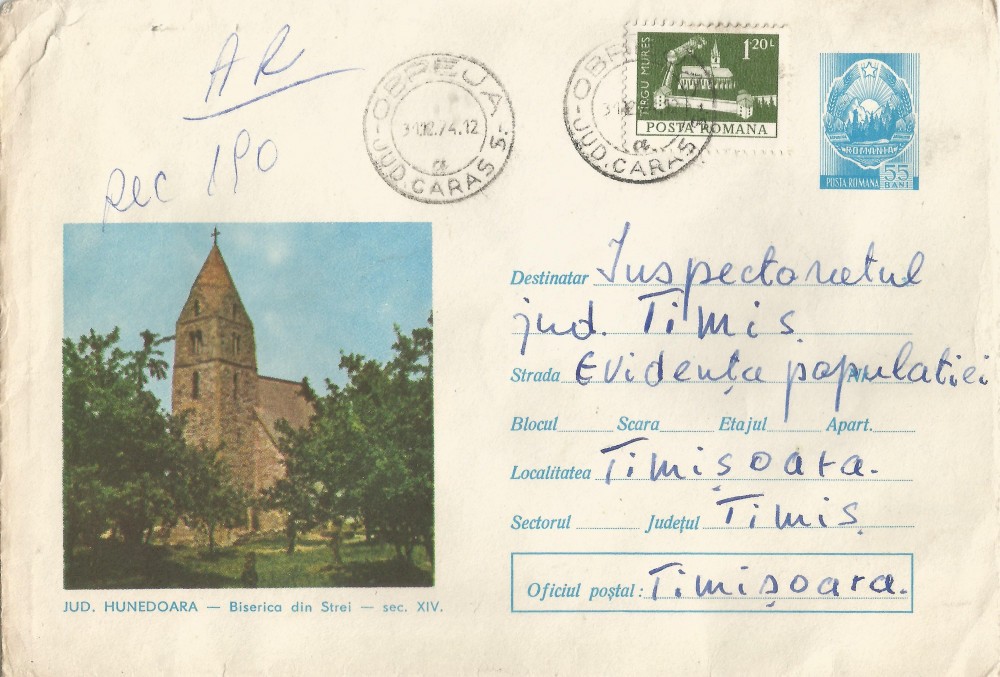 AR
Rec 190
OBREJA
31.12.74.12
a
JUD. CARAS S.
OBREJA
a
JUD. CARAS
TÎRGU MUREȘ
1·20 L
POSTA ROMANA
ROMANIA
POSTA ROMANA 55 BANI
Destinatar Inspectoratul
jud. Timiș
Strada Evidența populatiei
Blocul Scara Etajul Apart.
Localitatea Timișoara.
Sectorul Județul Timiș
Oficiul poștal: Timișoara.
JUD. HUNEDOARA — Biserica din Strei — sec. XIV.